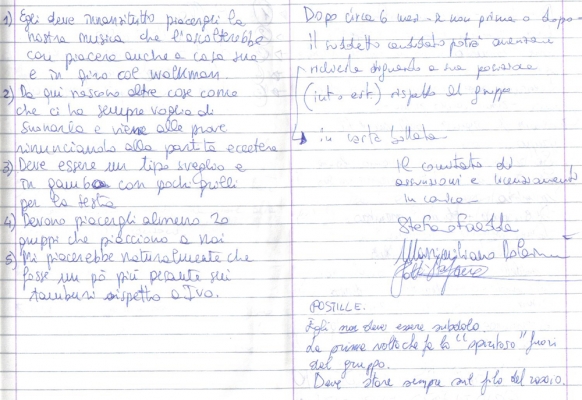 1) Egli deve innanzitutto piacergli la
nostra musica che l'ascolterebbe
con piacere anche a casa sua
e in giro col walkman.
2) Da qui nascono altre cose come
che ci ha sempre voglia di
suonarla e viene alle prove
rinunciando alla partita eccetera
3) Deve essere un tipo sveglio e
in gamba con pochi grilli
per la testa
4) Devono piacergli almeno 20
gruppi che piacciono a noi
5) Mi piacerebbe naturalmente che
fosse un pò più pesante sui
tamburi rispetto a Ivo.
Dopo circa 6 mesi e non prima o dopo
il suddetto candidato potrà avanzare
richieste riguardo a sua posizione
(int. o est.) rispetto al gruppo
in carta bollata
Il comitato di
assunzioni e licenziamenti
in carica
Massimiliano
POSTILLE.
Egli non deve essere subdolo.
La prima volta che fa lo "spiritoso" fuori
dal gruppo.
Deve stare sempre sul filo del rasoio.